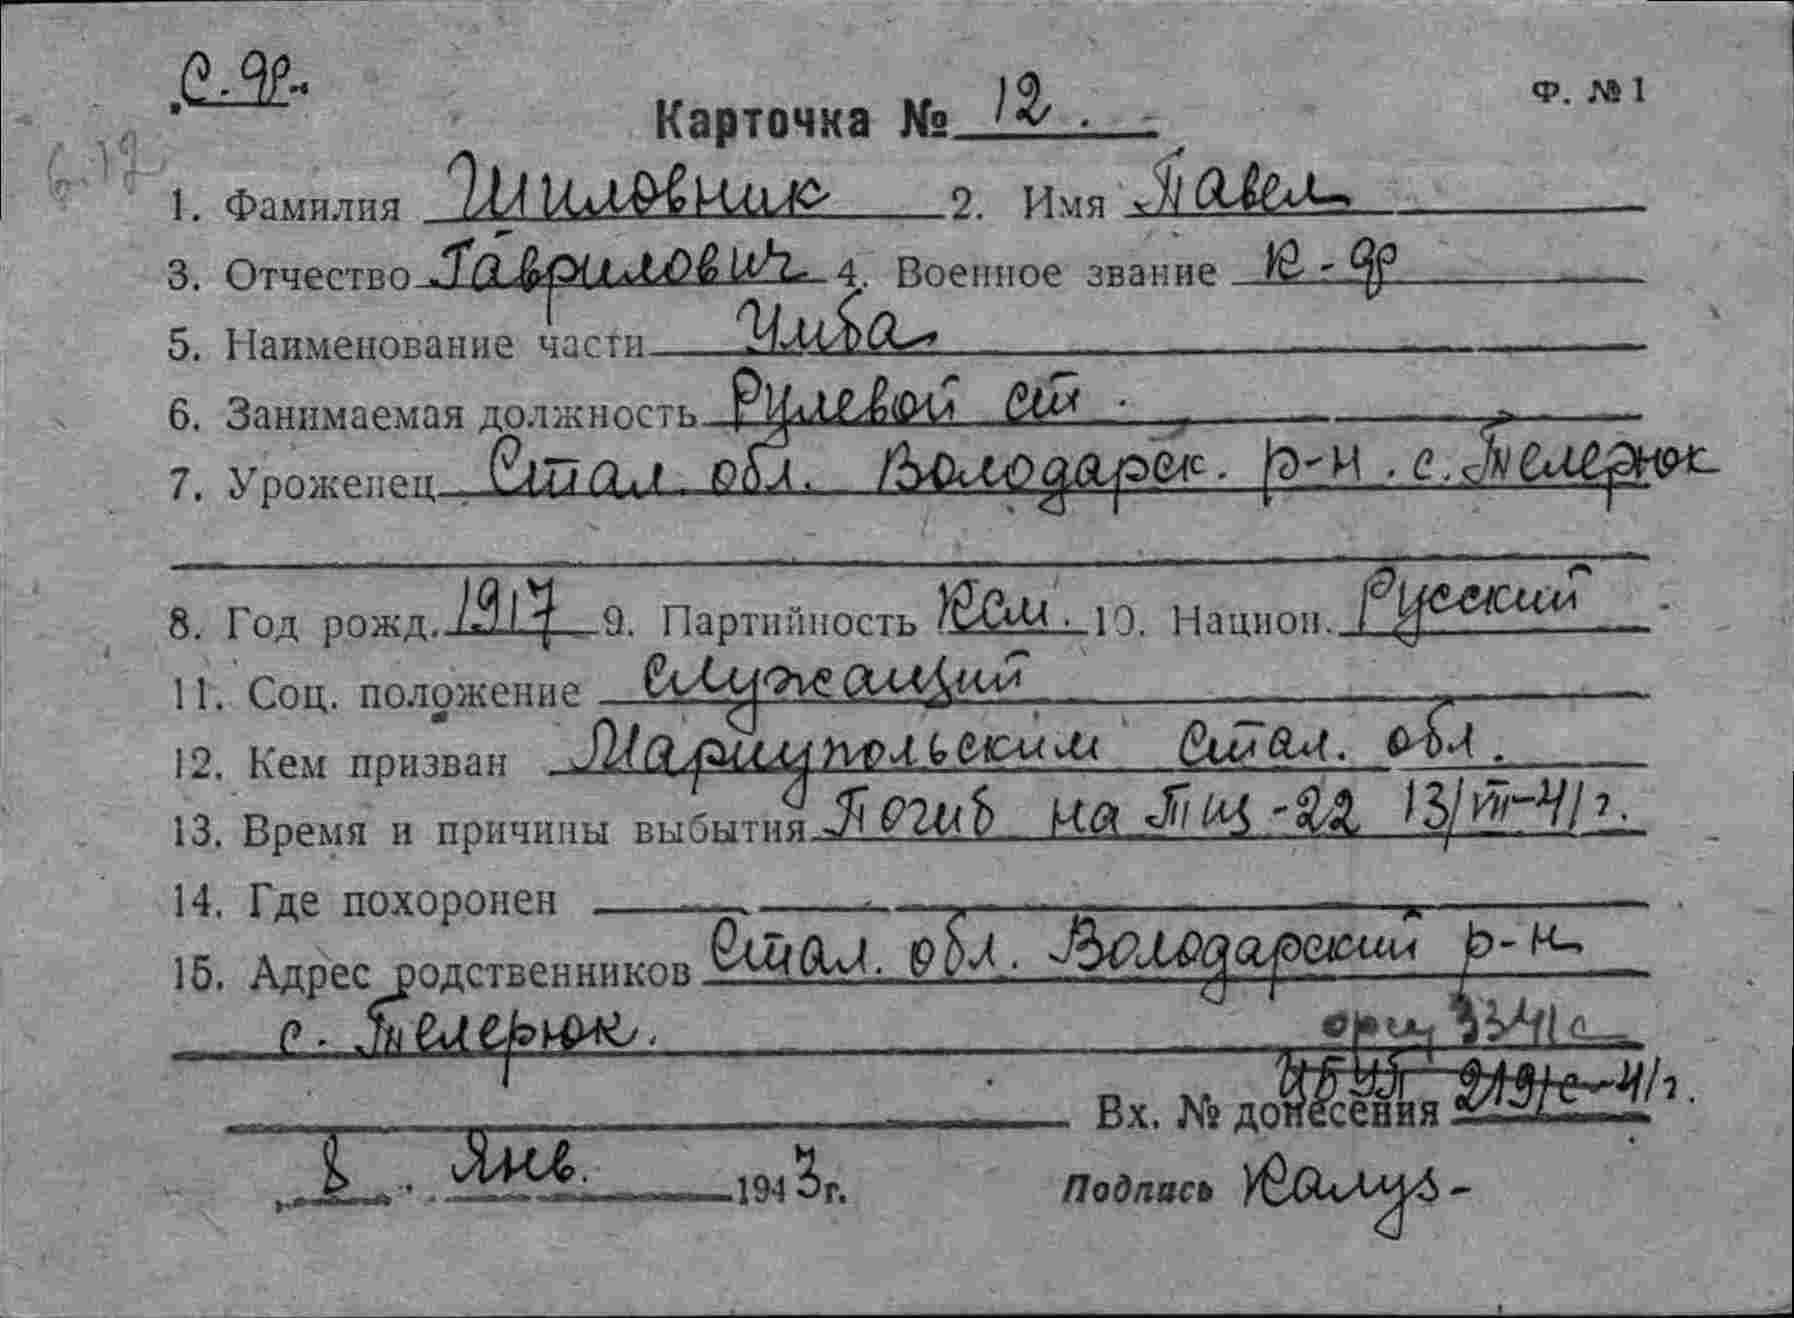 С. ф.
Карточка № 12. Ф. № 1
6.12
1. Фамилия Шиловник 2. Имя Павел
3. Отчество Гаврилович 4. Военное звание к-ф
5. Наименование части Чмба
6. Занимаемая должность Рулевой ст.
7. Уроженец Стал. обл. Володарск. р-н. с. Телерюк
8. Год рожд. 1917 9. Партийность Ксм. 10. Национ. Русский
11. Соц. положение Служащий
12. Кем призван Мариупольским Стал. обл.
13. Время и причины выбытия Погиб на Тщ-22 13/VIII-41г.
14. Где похоронен
15. Адрес родственников Стал. обл. Володарский р-н
с. Телерюк. 3341с
Вх. № донесения 219/с-41г.
8. Янв. 1943г. Подпись